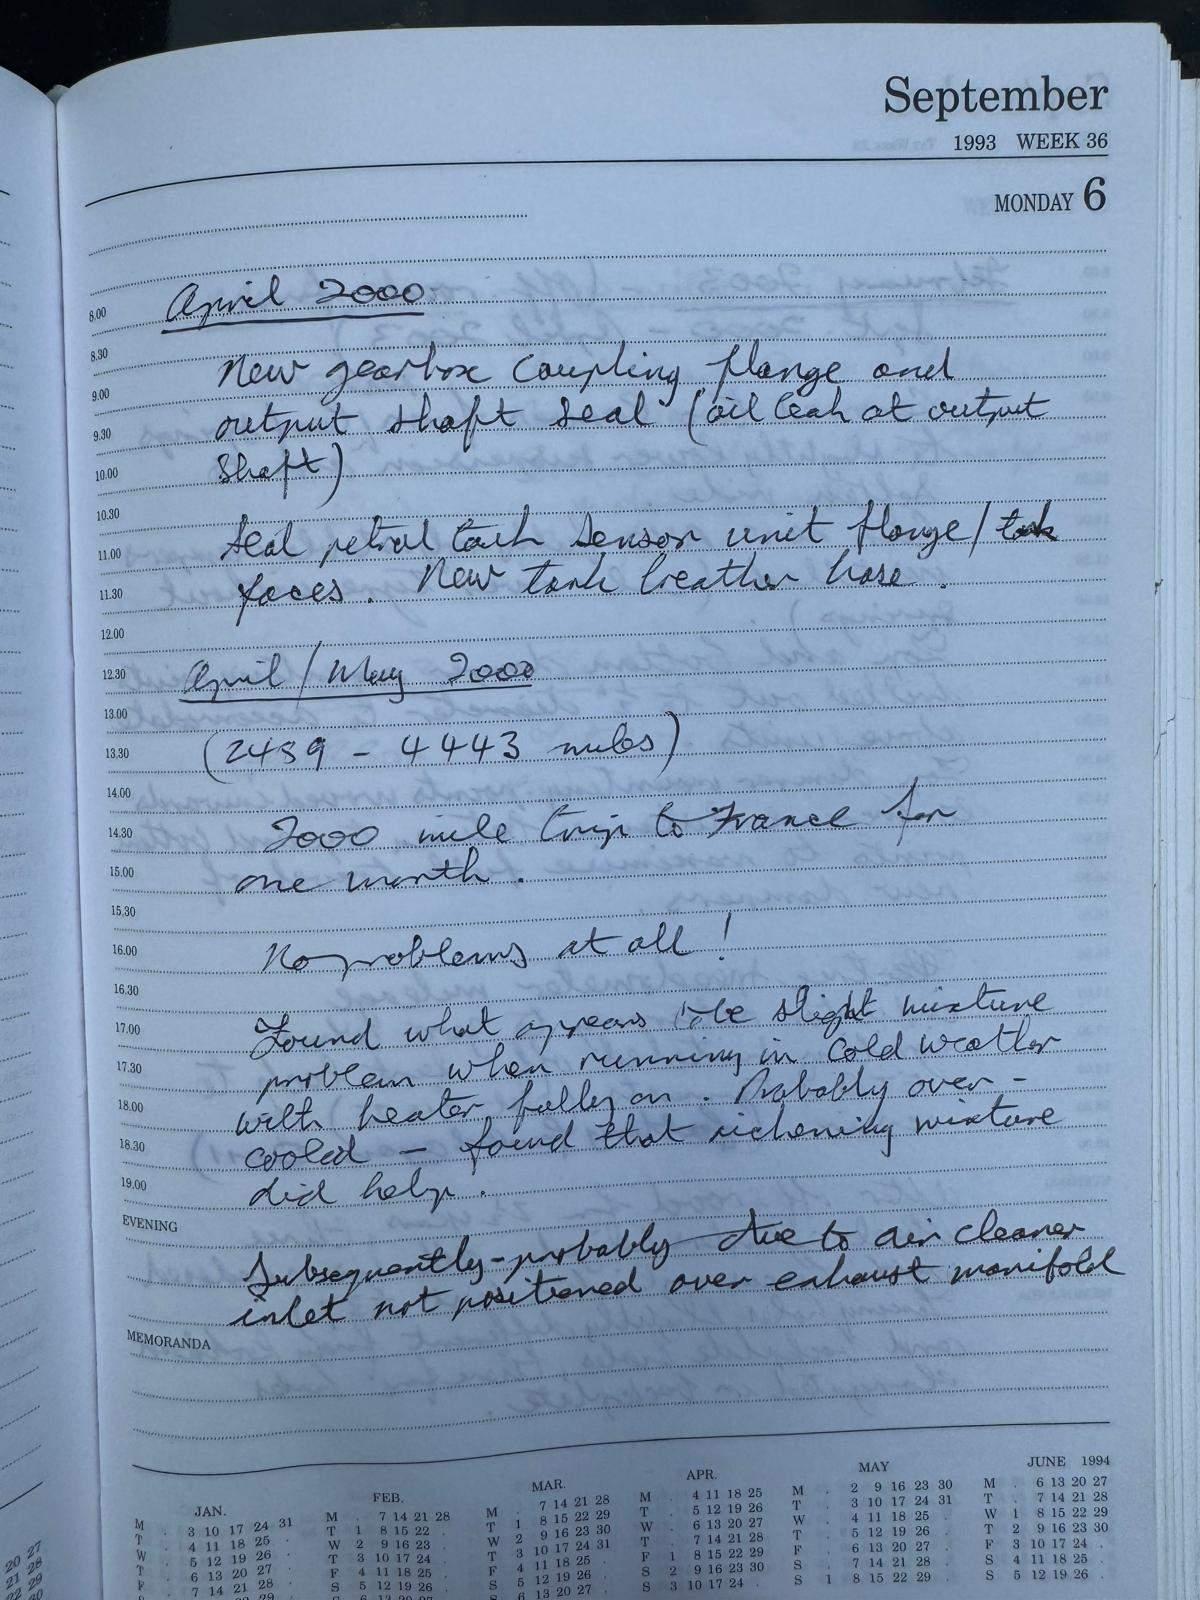 September
1993 WEEK 36
MONDAY 6
8.00 April 2000
8.30
9.00 New gearbox coupling flange and
9.30 output shaft seal (oil leak at output
10.00 shaft)
10.30
11.00 Seal petrol tank sensor unit flange/tank
11.30 faces. New tank breather hose.
12.00
12.30 April/May 2000
13.00
13.30 (2439 - 4443 miles)
14.00
14.30 2000 mile trip to France for
15.00 one month.
15.30
16.00 No problems at all!
16.30
17.00 Found what appears to be slight mixture
17.30 problem when running in cold weather
18.00 with heater fully on. Probably over-
18.30 cooled - found that richening mixture
19.00 did help.
EVENING
Subsequently-probably due to air cleaner
inlet not positioned over exhaust manifold
MEMORANDA
JAN. FEB. MAR. APR. MAY JUNE 1994
M . 3 10 17 24 31 M . 7 14 21 28 M . 7 14 21 28 M . 4 11 18 25 M . 2 9 16 23 30 M . 6 13 20 27
T . 4 11 18 25 . T 1 8 15 22 . T 1 8 15 22 29 T . 5 12 19 26 T . 3 10 17 24 31 T . 7 14 21 28
W . 5 12 19 26 . W 2 9 16 23 . W 2 9 16 23 30 W . 6 13 20 27 W . 4 11 18 25 . W 1 8 15 22 29
T . 6 13 20 27 . T 3 10 17 24 . T 3 10 17 24 31 T . 7 14 21 28 T . 5 12 19 26 . T 2 9 16 23 30
F . 7 14 21 28 . F 4 11 18 25 . F 4 11 18 25 . F 1 8 15 22 29 F . 6 13 20 27 . F 3 10 17 24 .
S 5 12 19 26 . S 5 12 19 26 . S 2 9 16 23 30 S . 7 14 21 28 . S 4 11 18 25 .
S 6 13 20 27 . S 3 10 17 24 . S 1 8 15 22 29 . S 5 12 19 26 .
20 27
21 28
22 29